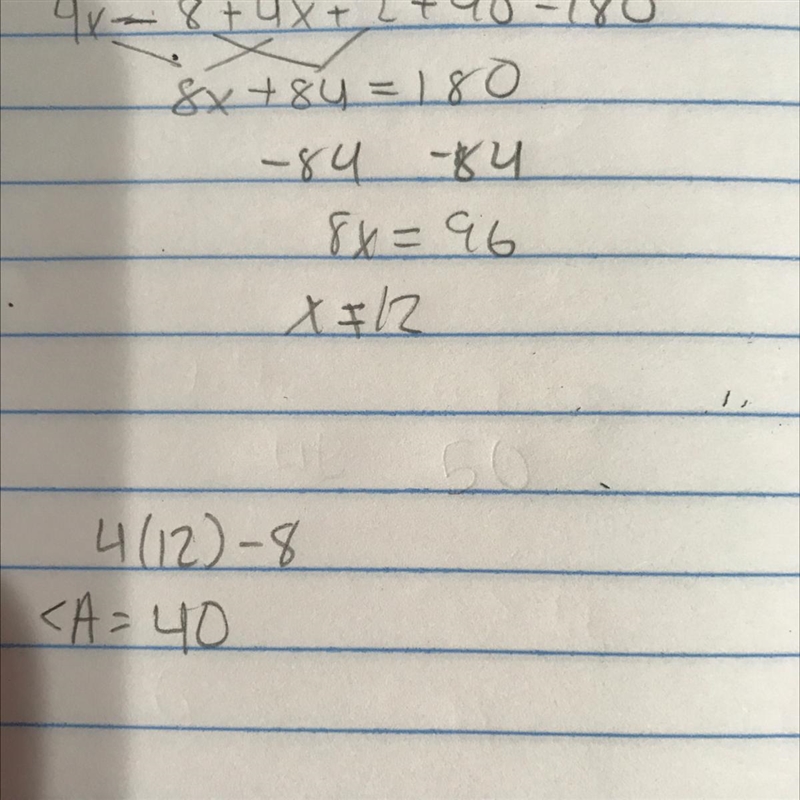 4x - 8 + 4x + 2 + 90 = 180
8x + 84 = 180
-84 -84
8x = 96
x = 12
50
4(12) - 8
<A = 40